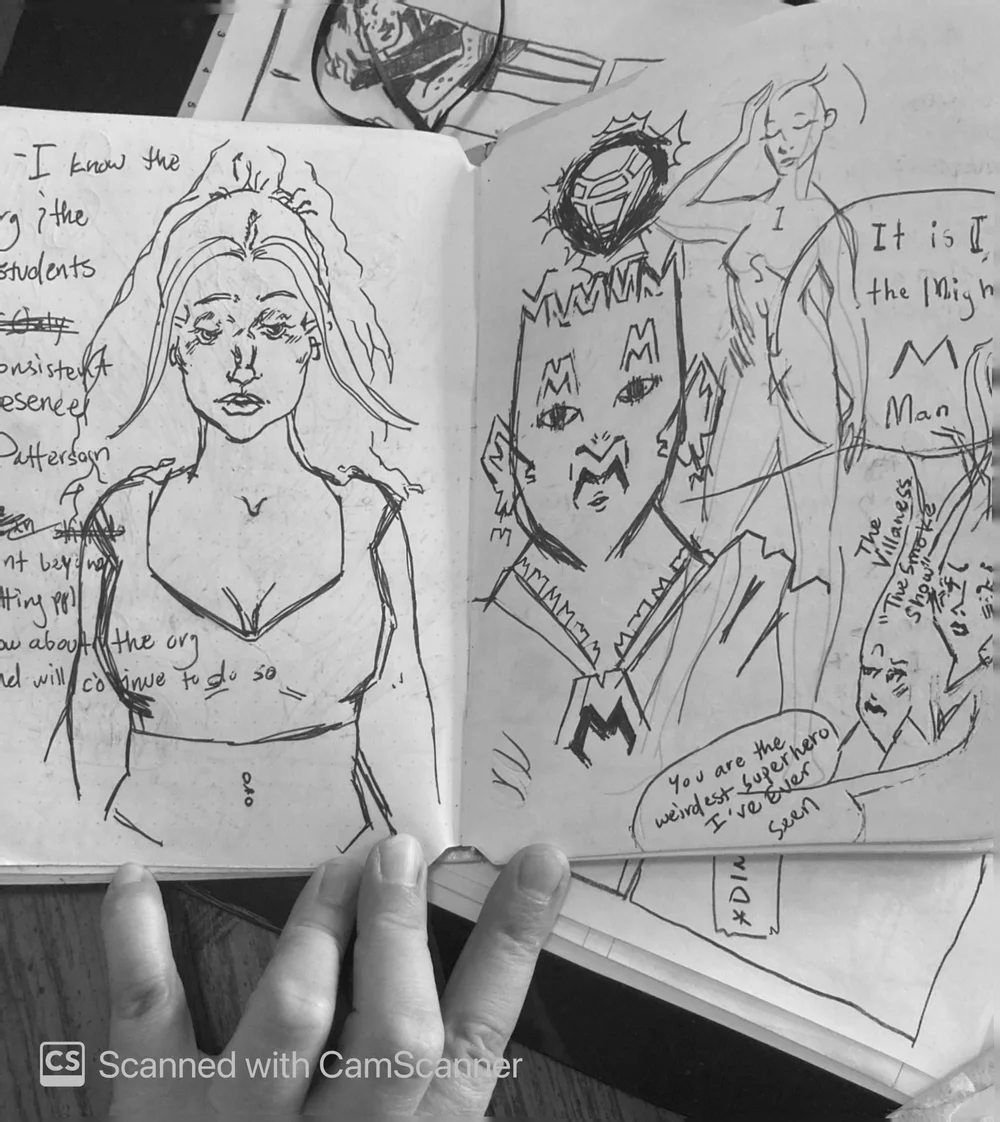 -I know the
rg ; the
students
onsistent
esence
Patterson
nt beyond
tting ppl
ow about the org
nd will continue to do so
It is I,
the Migh
M
Man
I
S
M
M
M
The
Villaness
"The Smoke
Show"
You are the
weirdest superhero
I've ever
seen
*DIN
CS Scanned with CamScanner